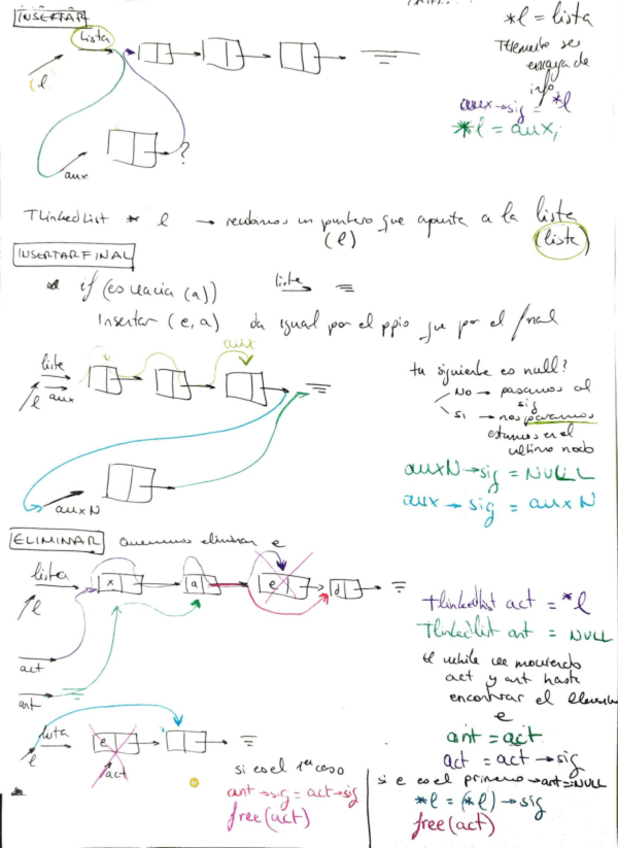 INSERTAR
lista
*l = lista
TElemento se
encarga de
info
aux→sig = *l
*l = aux;
(l)
?
aux
TLinkedList * l → recibimos un puntero que apunta a la lista
(l)
(lista)
INSERTARFINAL
if (es vacia (a))
lista
Insertar (e, a) da igual por el ppio que por el final
aux
lista
aux
l
tu siguiente es null?
NO → pasamos al
sig
SI → nos paramos
estamos en el
ultimo nodo
auxN→sig = NULL
aux → sig = auxN
auxN
ELIMINAR queremos eliminar e
lista
x
a
e
d
l
TLinkedlist act = *l
TLinkedlist ant = NULL
El while va moviendo
act y ant hasta
encontrar el elemento
e
act
ant
ant = act
act = act → sig
lista
e
l
act
si es el 1er caso
ant → sig = act → sig
free(act)
si e es el primero → ant = NULL
*l = (*l) → sig
free(act)